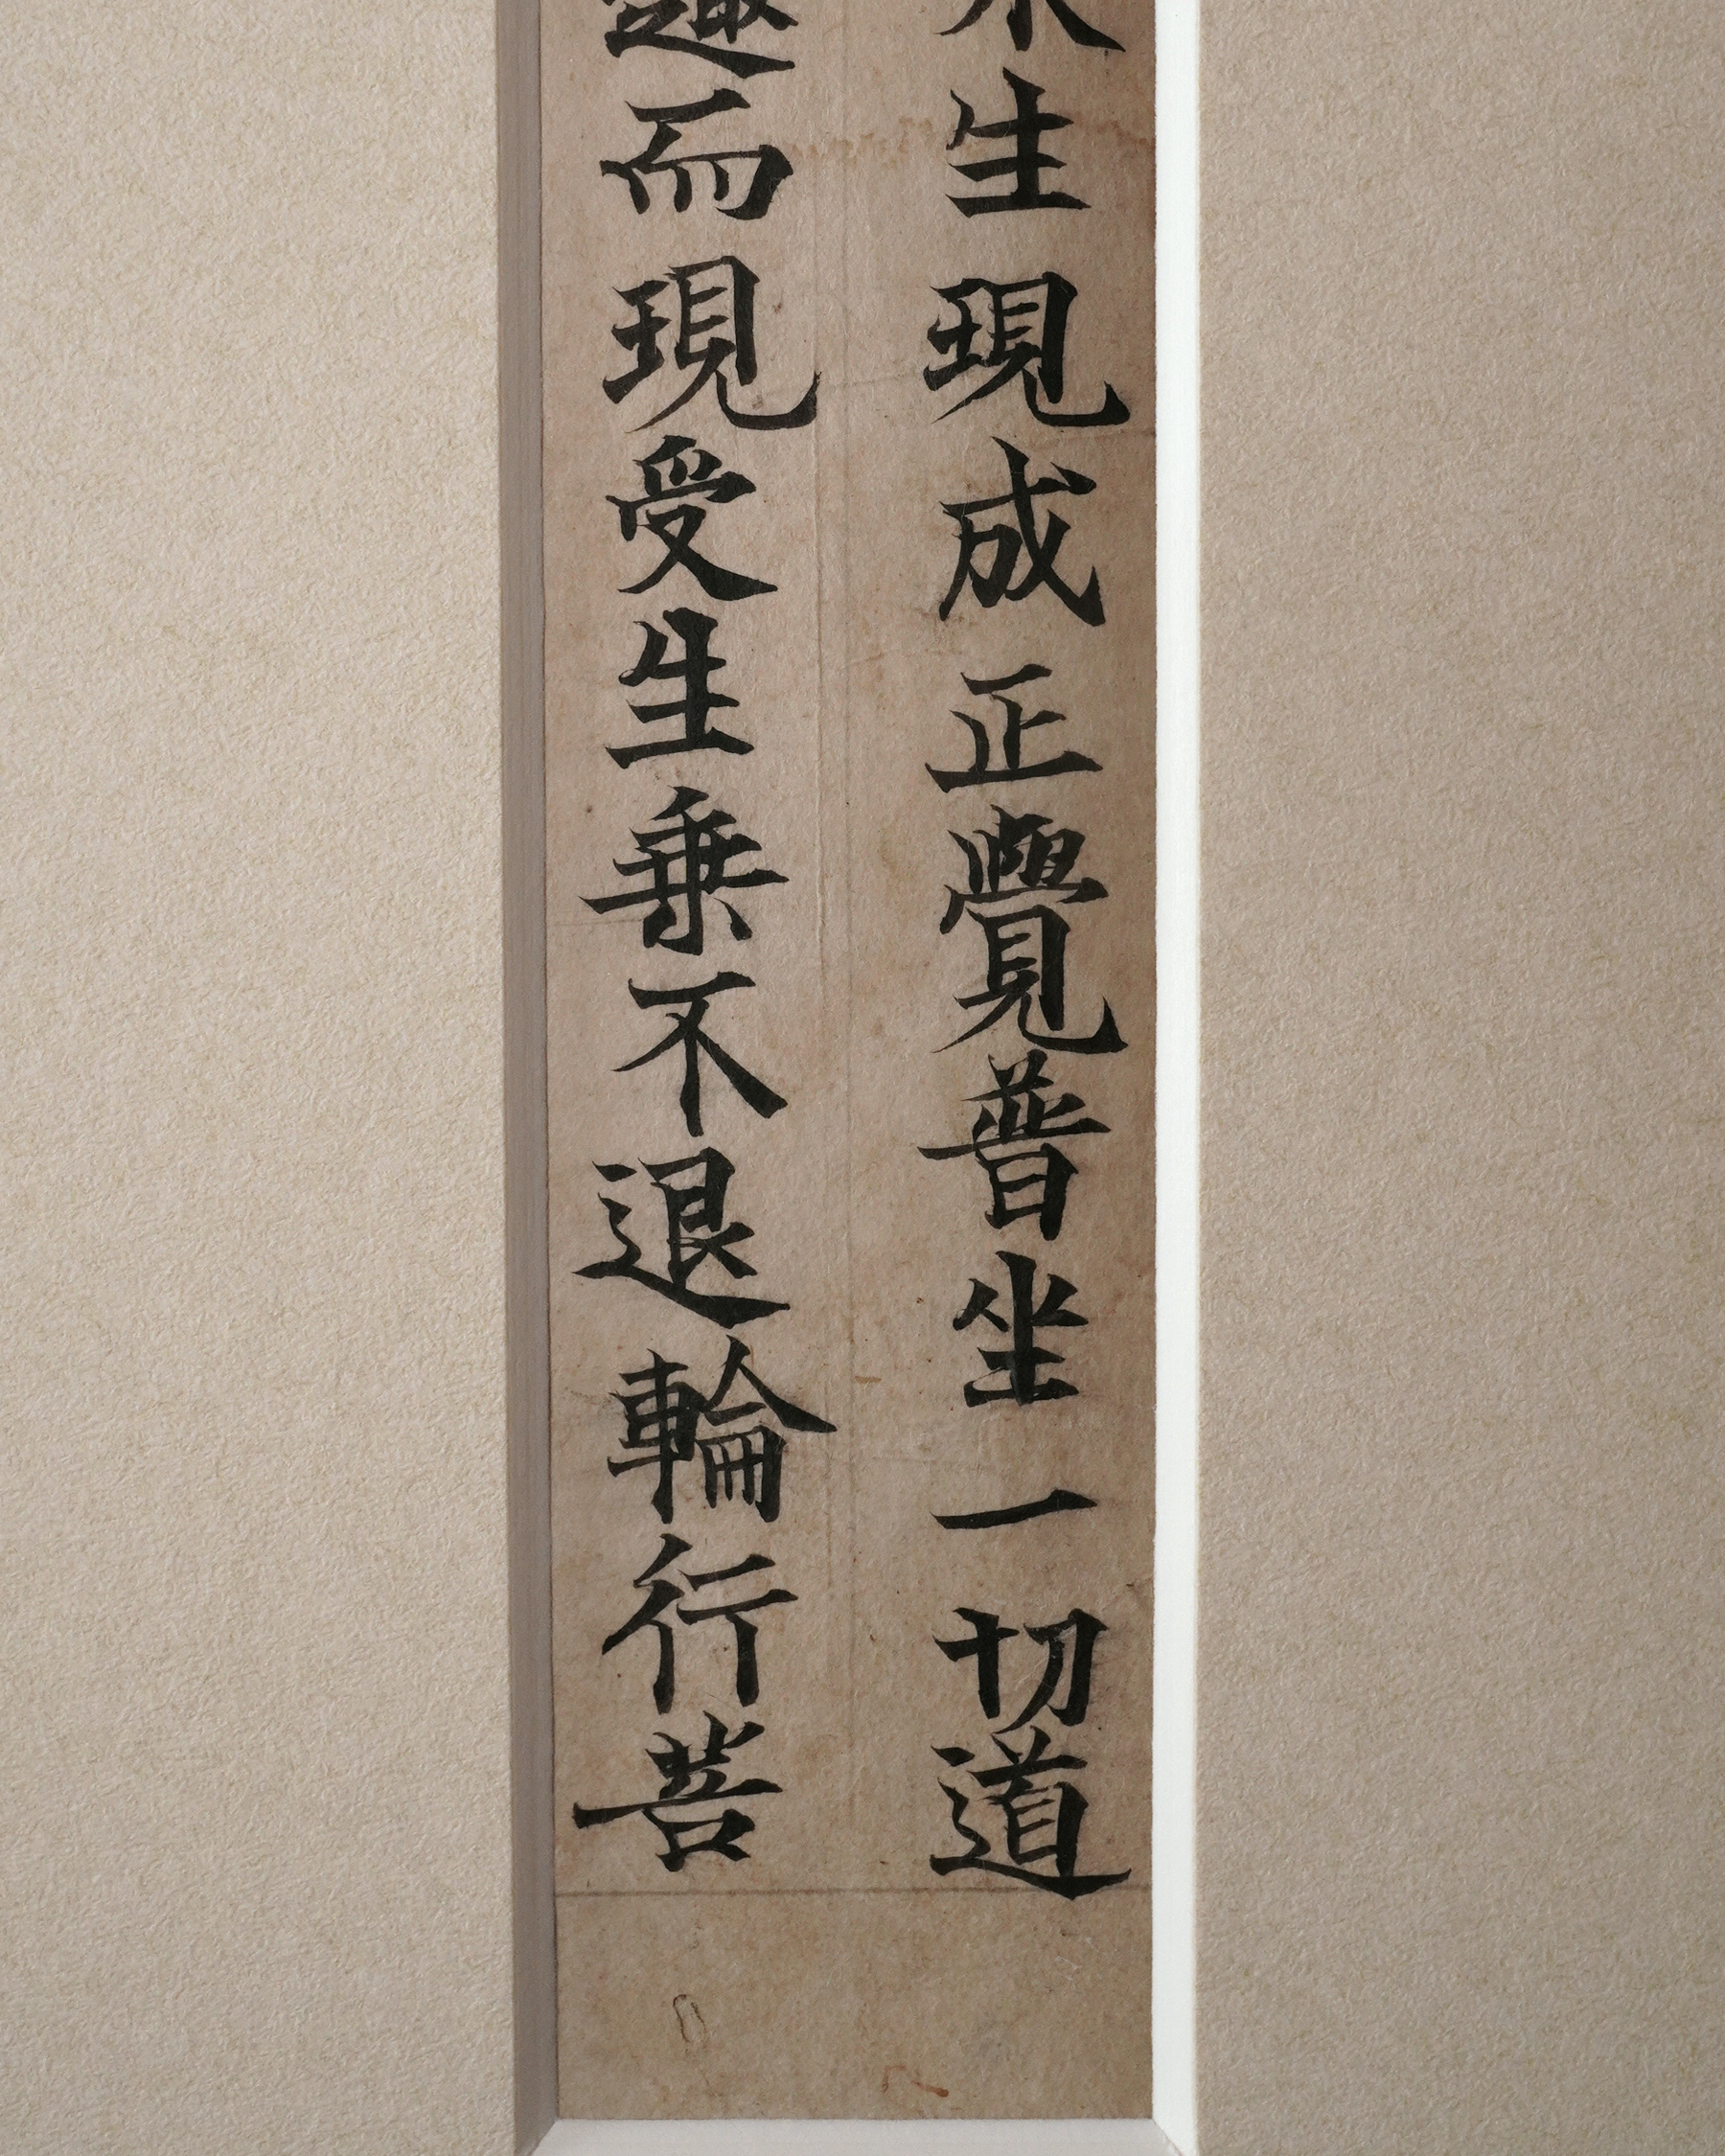 生現成正覺普坐一切道
趣而現受生乗不退輪行菩